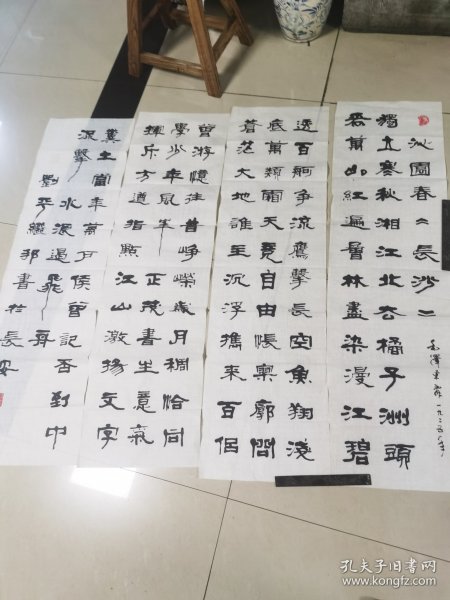 沁園春 長沙
毛澤東 一九二五年
獨立寒秋湘江北去橘子洲頭
看萬山紅遍層林盡染漫江碧
透百舸争流鷹擊長空魚翔淺
底萬類霜天競自由悵寥廓問
蒼茫大地誰主沉浮攜來百侣
曾游憶往昔崢嶸歲月稠恰同
學少年風華正茂書生意氣
揮斥方遒指點江山激揚文字
糞土當年萬户侯曾記否到中
流擊水浪遏飛舟
書於長安
孔夫子旧书网
www.kongfz.com